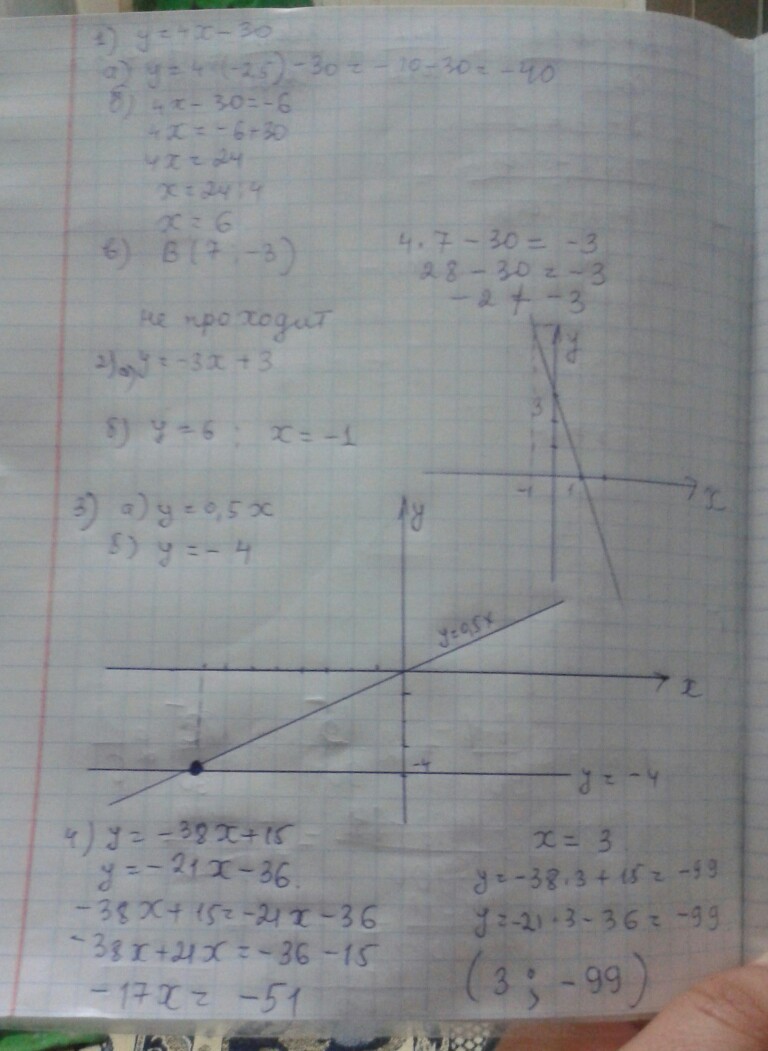 1) y = 4x - 30
а) y = 4·(-2,5) - 30 = -10 - 30 = -40
б) 4x - 30 = -6
4x = -6+30
4x = 24
x = 24:4
x = 6
в) B(7; -3)
4·7 - 30 = -3
28 - 30 = -3
-2 ≠ -3
не проходит
2) а) y = -3x + 3
y
3
-1 1
x
б) y = 6 ; x = -1
3) а) y = 0,5x
б) y = -4
y
y=0,5x
x
-4
y = -4
4) y = -38x+15
y = -21x-36.
-38x+15=-21x-36
-38x+21x=-36-15
-17x = -51
x = 3
y=-38·3+15=-99
y=-21·3-36=-99
(3; -99)